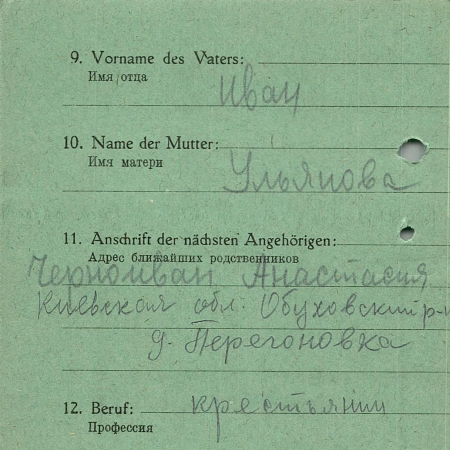 9. Vorname des Vaters:
Имя отца
Иван
10. Name der Mutter:
Имя матери
Ульянова
11. Anschrift der nächsten Angehörigen:
Адрес ближайших родственников
Черноиван Анастасия
Киевская обл. Обуховский р-н
д. Перегоновка
12. Beruf:
крестьянин
Профессия